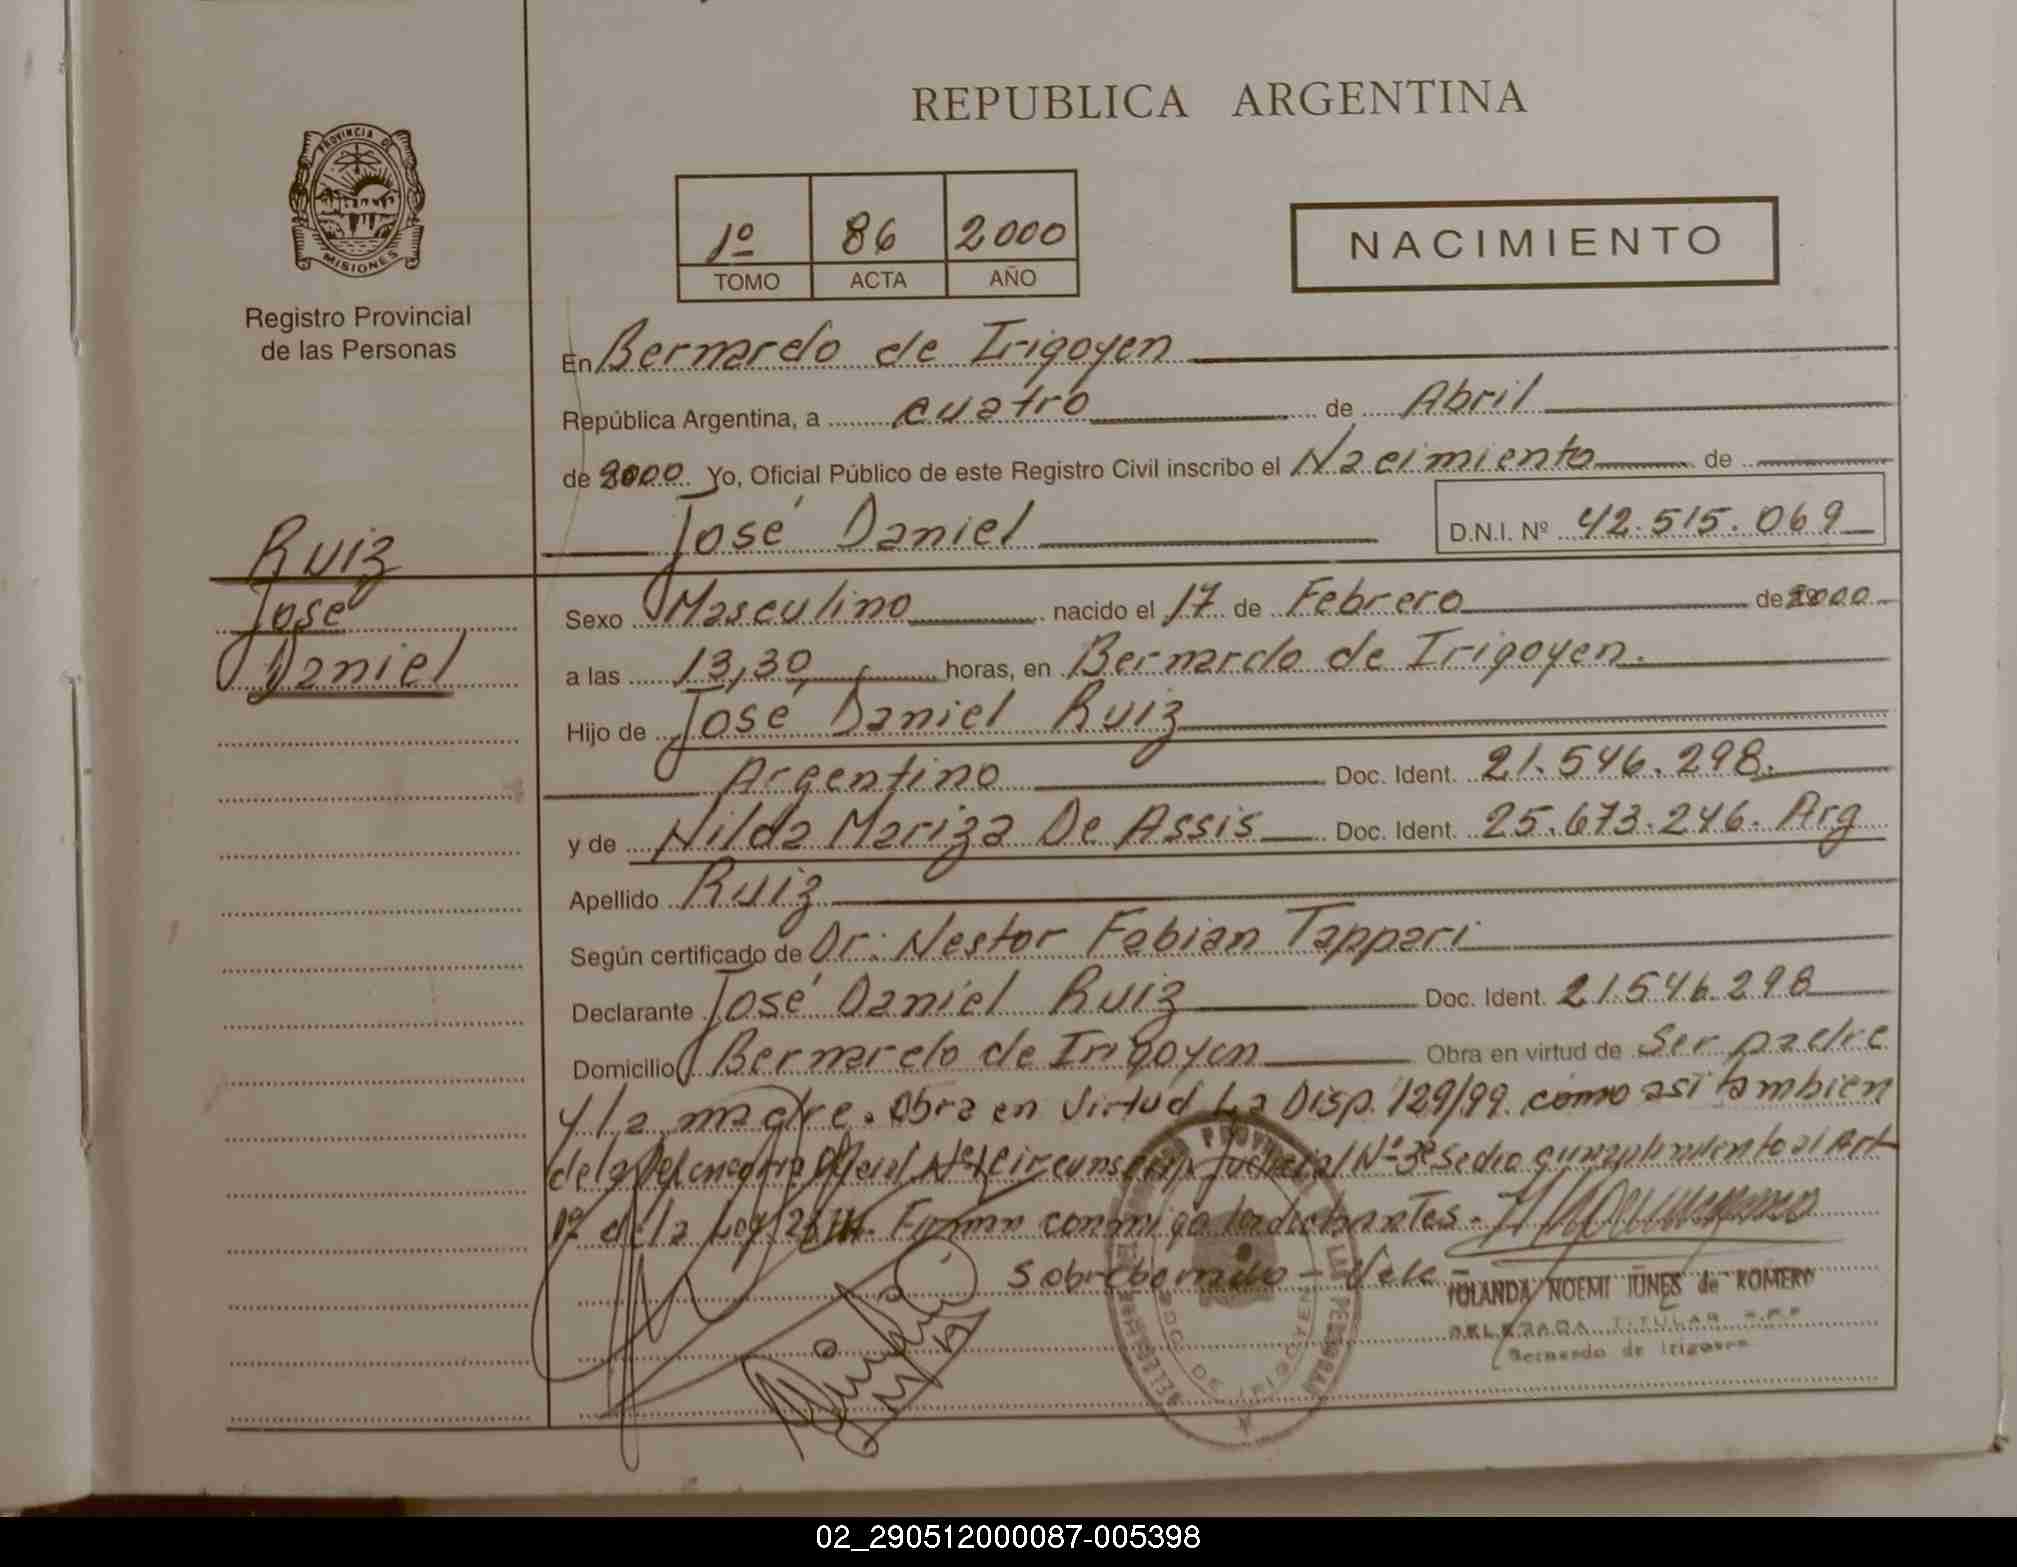 REPUBLICA ARGENTINA
PROVINCIA DE
MISIONES
Registro Provincial
de las Personas
1º 86 2000
TOMO ACTA AÑO
NACIMIENTO
En Bernardo de Irigoyen
República Argentina, a cuatro de Abril
de 2000 Yo, Oficial Público de este Registro Civil inscribo el Nacimiento de
José Daniel D.N.I. Nº 42.515.069
Ruiz
José
Daniel
Sexo Masculino nacido el 17 de Febrero de 2000
a las 13,30 horas, en Bernardo de Irigoyen.
Hijo de José Daniel Ruiz
Argentino Doc. Ident. 21.546.298.
y de Nilda Mariza De Assis Doc. Ident. 25.673.246. Arg
Apellido Ruiz
Según certificado de Dr. Nestor Fabian Tappari
Declarante José Daniel Ruiz Doc. Ident. 21546298
Domicilio Bernardo de Irigoyen Obra en virtud de Ser padre
y la madre. Obra en virtud La Disp. 129/99. como asi tambien
de la Oficial Circunscrip. Judicial Nº 3 Se dio cumplimiento al Art
1º de la Ley Firman conmigo
Sobreborrado - Vale -
YOLANDA NOEMI IUNES de ROMERO
DELEGADA TITULAR
Bernardo de Irigoyen
02_290512000087-005398